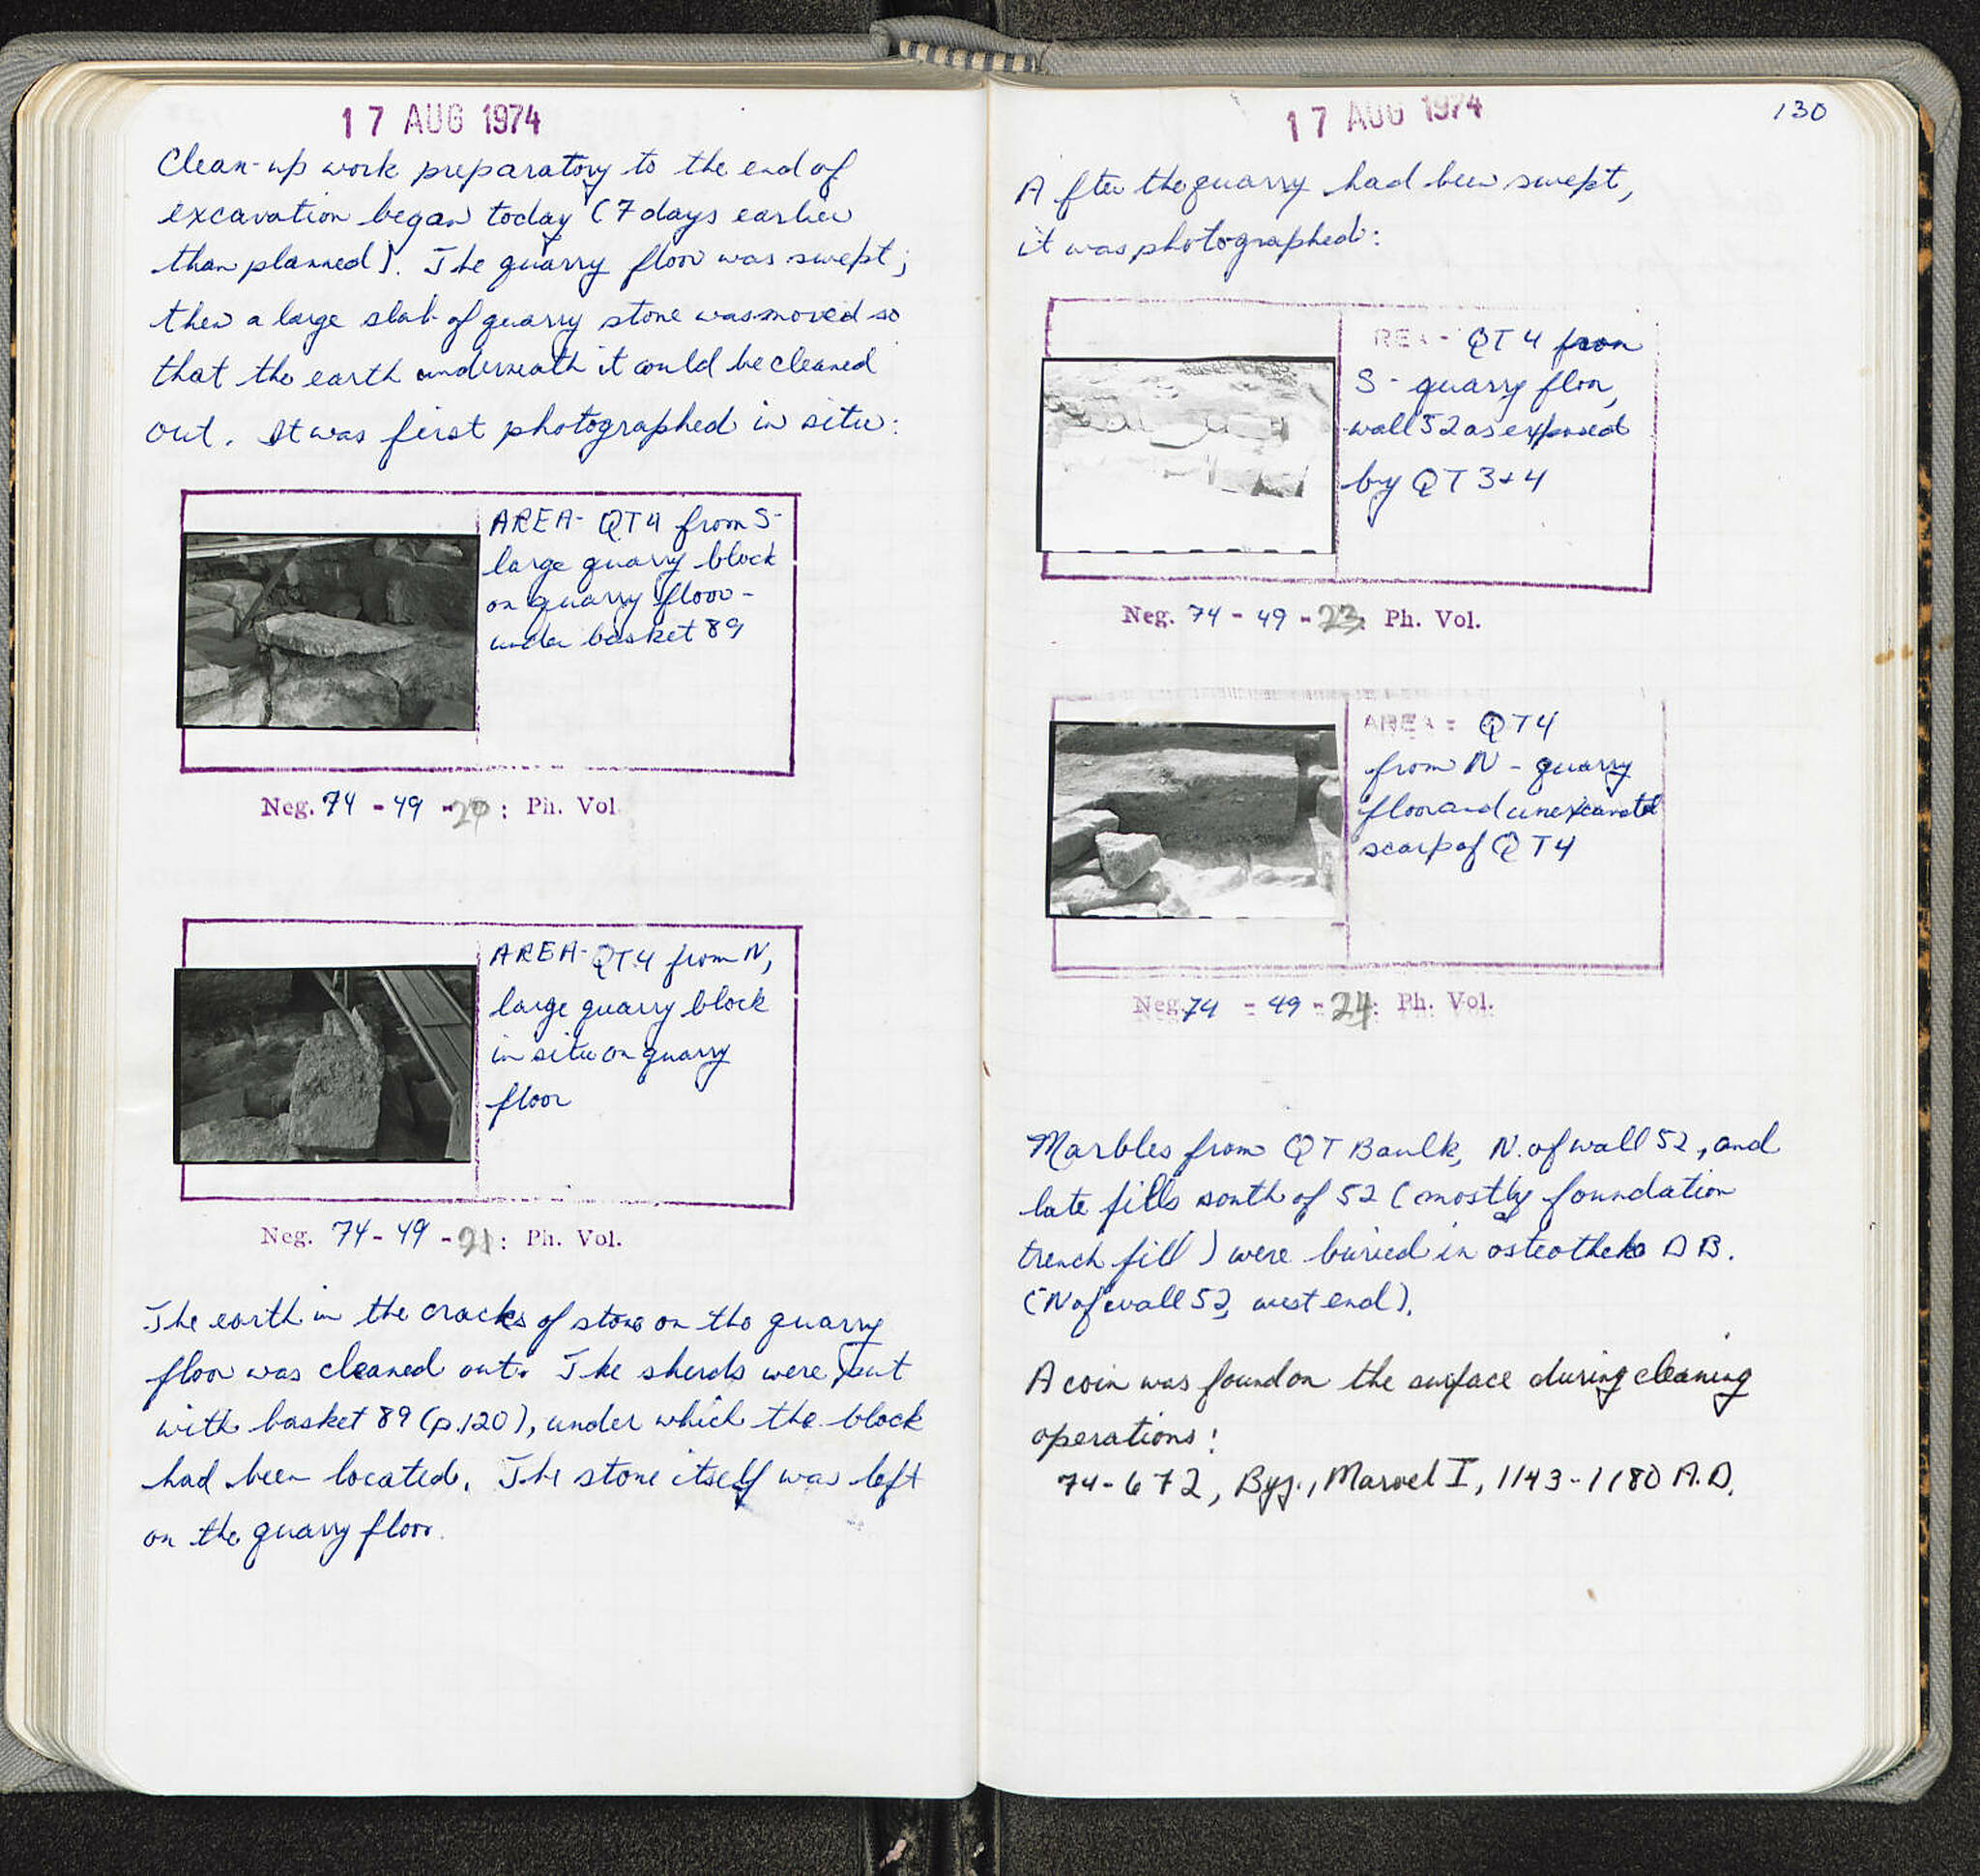 17 AUG 1974
Clean-up work preparatory to the end of
excavation began today (7 days earlier
than planned). The quarry floor was swept;
then a large slab of quarry stone was moved so
that the earth underneath it could be cleaned
out. It was first photographed in situ:
AREA- QT4 from S-
large quarry block
on quarry floor -
under basket 89
Neg. 74 - 49 - 20 : Ph. Vol.
AREA- QT4 from N,
large quarry block
in situ on quarry
floor
Neg. 74 - 49 - 21 : Ph. Vol.
The earth in the cracks of stone on the quarry
floor was cleaned out. The sherds were put
with basket 89 (p.120), under which the block
had been located. The stone itself was left
on the quarry floor.
17 AUG 1974
130
After the quarry had been swept,
it was photographed:
REA - QT 4 from
S - quarry floor,
wall 52 as exposed
by QT 3+4
Neg. 74 - 49 - 23: Ph. Vol.
AREA - QT4
from N - quarry
floor and unexcavated
scarp of QT4
Neg. 74 - 49 - 24: Ph. Vol.
Marbles from QT Baulk, N. of wall 52, and
late fills south of 52 (mostly foundation
trench fill) were buried in osteotheke DB.
(N of wall 52, west end).
A coin was found on the surface during cleaning
operations:
74-672, Byz., Manuel I, 1143-1180 A.D.